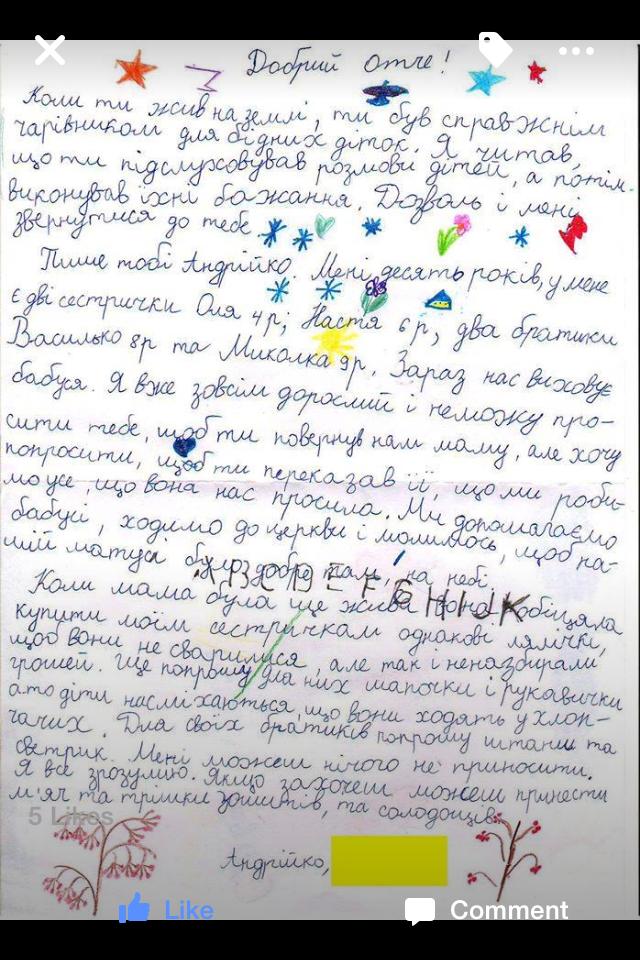 Добрий отче!
Коли ти жив на землі, ти був справжнім
чарівником для бідних діток. Я читав,
що ти підслуховував розмови дітей, а потім
виконував їхні бажання. Дозволь і мені
звернутися до тебе.
Пише тобі Андрійко. Мені десять років, у мене
є дві сестрички Оля 4 р; Настя 6 р, два братики
Василько 8р та Миколка 9р. Зараз нас виховує
бабуся. Я вже зовсім дорослий і неможу про-
сити тебе, щоб ти повернув нам маму, але хочу
попросити, щоб ти переказав її, що ми роби-
мо усе, що вона нас просила. Ми допомагаємо
бабусі, ходимо до церкви і молимось, щоб на-
шій матусі було добре там, на небі.
ABCDEFGHIJK
Коли мама була ще жива вона обіцяла
купити моїм сестричкам однакові лялічки,
щоб вони не сварилися, але так і неназбирали
грошей. Ще попрошу для них шапочки і рукавички
а то діти насміхаються, що вони ходять у хлоп-
чачих. Для своїх братиків попрошу штани та
светрик. Мені можеш нічого не приносити.
Я все зрозумію. Якщо захочеш можеш принести
м'яч та трішки зошитів, та солодощів.
5 Likes
Андрійко,
Like
Comment